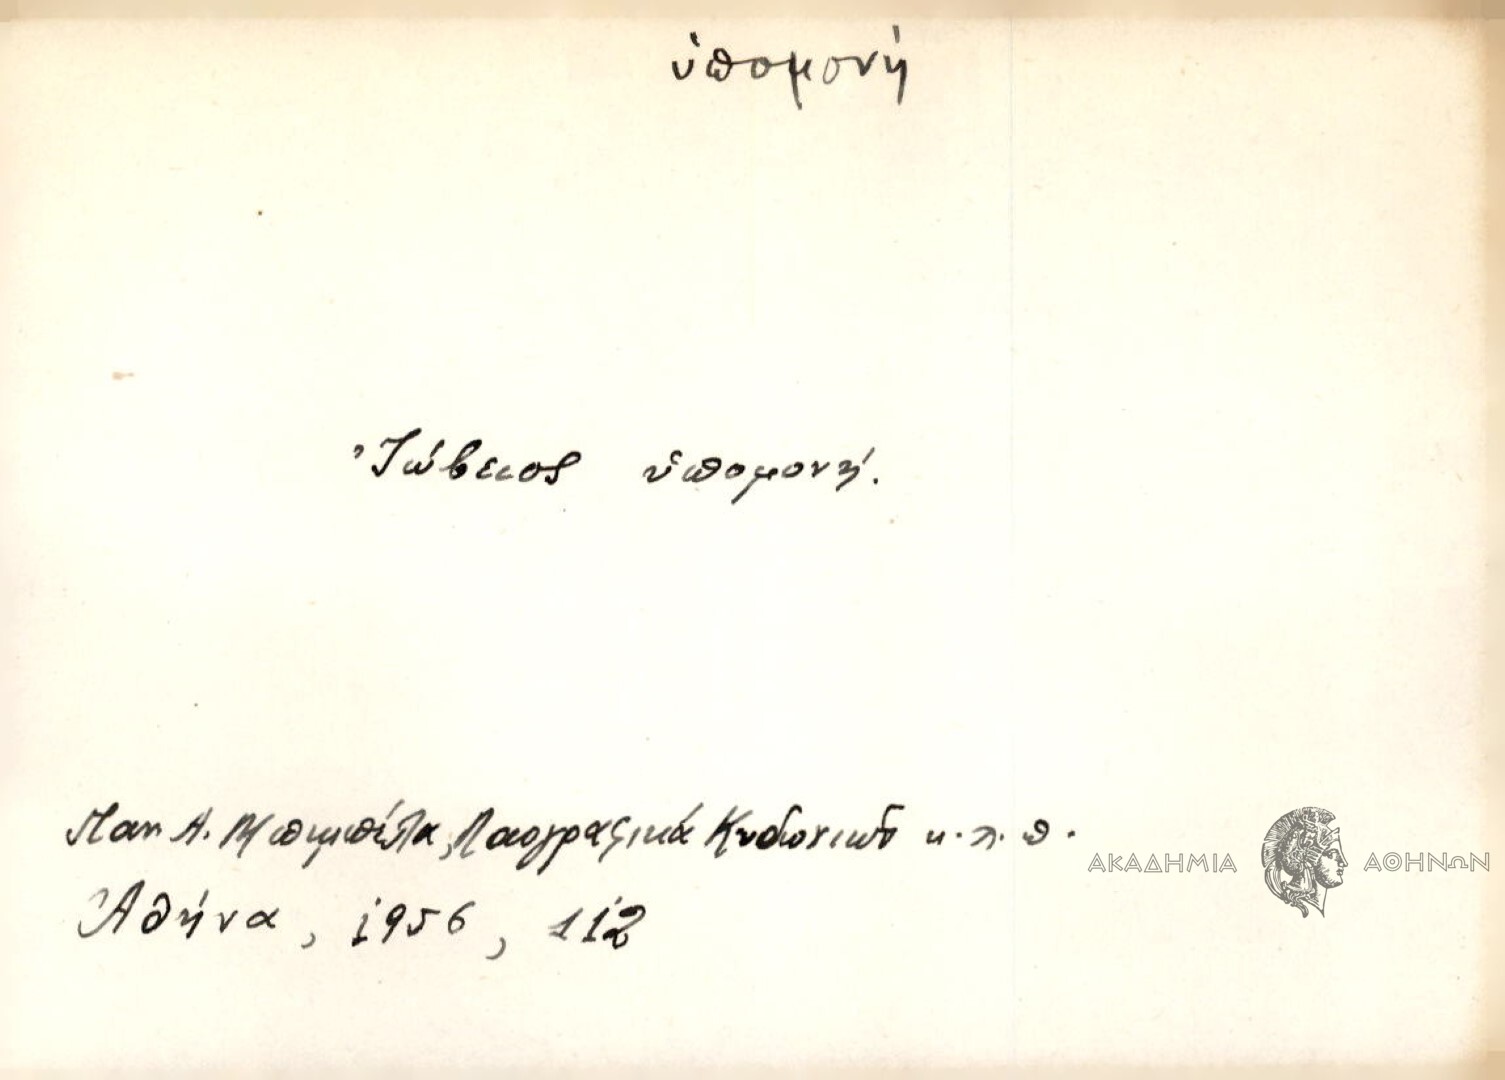 ὑπομονή
Ἰώβειος ὑπομονή.
Παν. Α. Μπιμπέλα, Λαογραφικά Κυδωνιῶν κ.λ.π.
Ἀθήνα, 1956, 112
ΑΚΑΔΗΜΙΑ ΑΘΗΝΩΝ